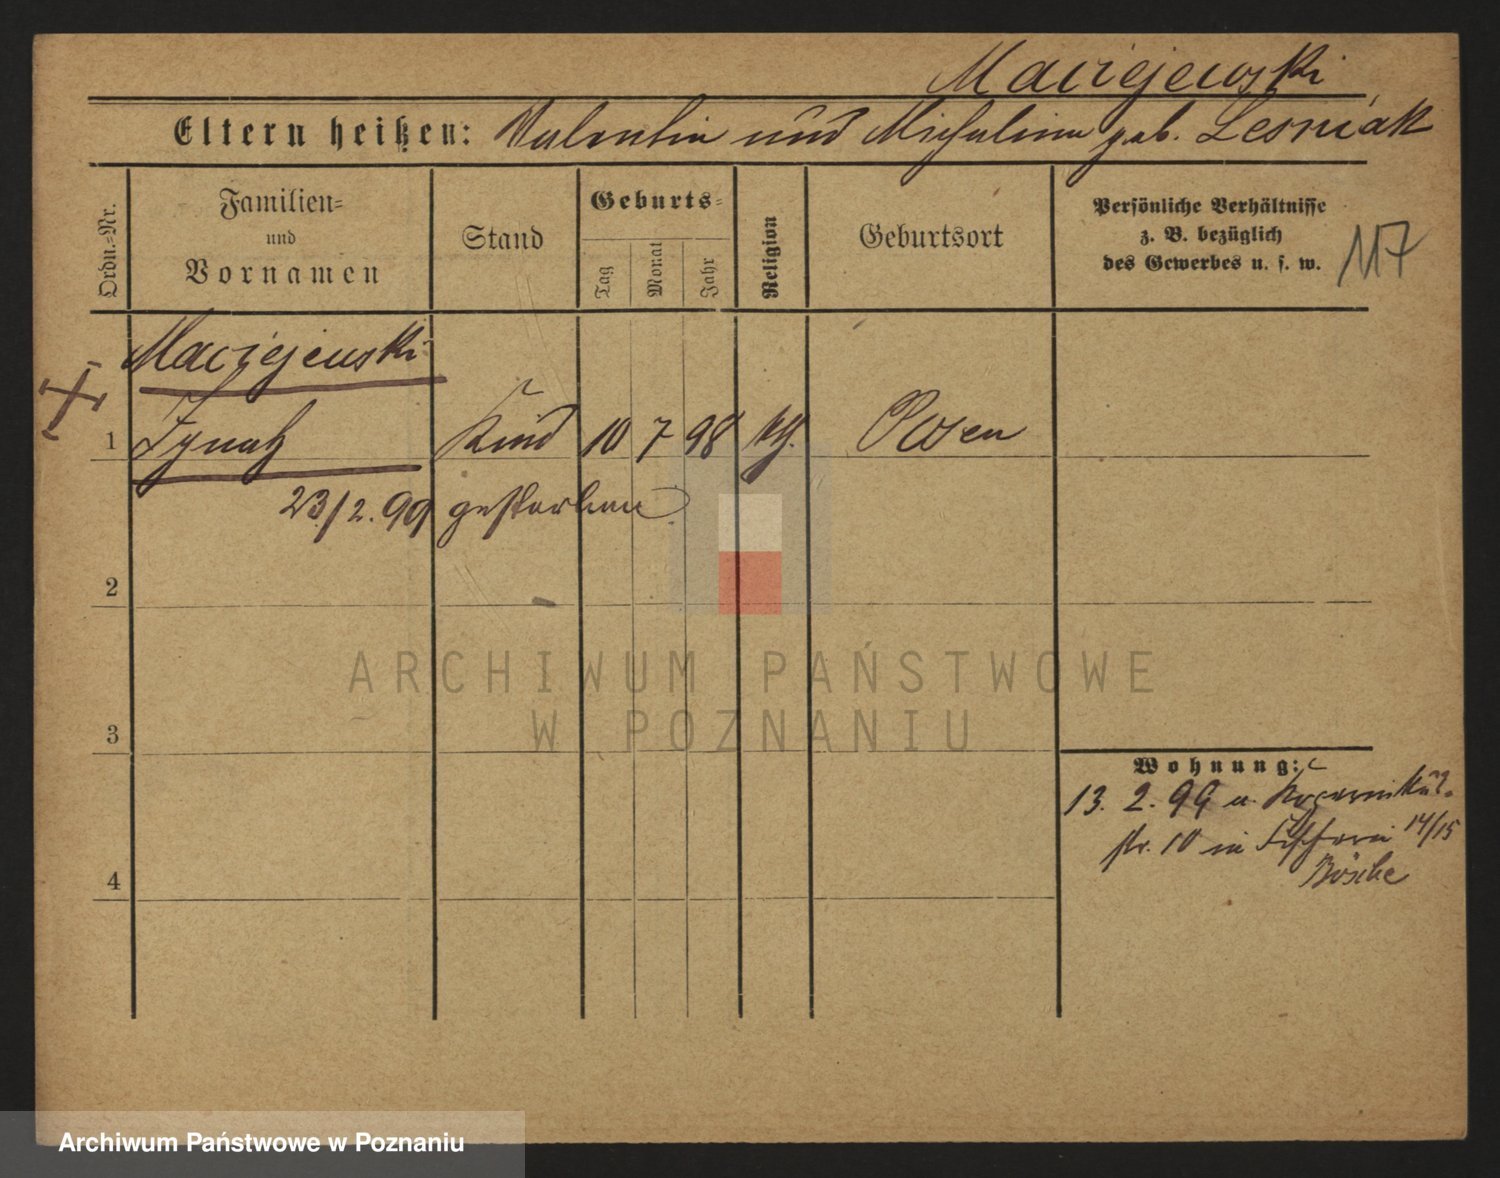 Maciejewski
Eltern heißen: Valentin und Michalina geb. Lesniak
Ordn.-Nr.
Familien-
und
Vornamen
Stand
Geburts-
Tag
Monat
Jahr
Religion
Geburtsort
Persönliche Verhältnisse
z. B. bezüglich
des Gewerbes u. s. w.
117
Maciejewski
1 Ignatz Kind 10 7 98 kth. Posen
23/2. 99 gestorben
2
ARCHIWUM PAŃSTWOWE
W POZNANIU
3
Wohnung:
13. 2. 99 u.
str. 10 in Fischerei 14/15
Bösche
4
Archiwum Państwowe w Poznaniu